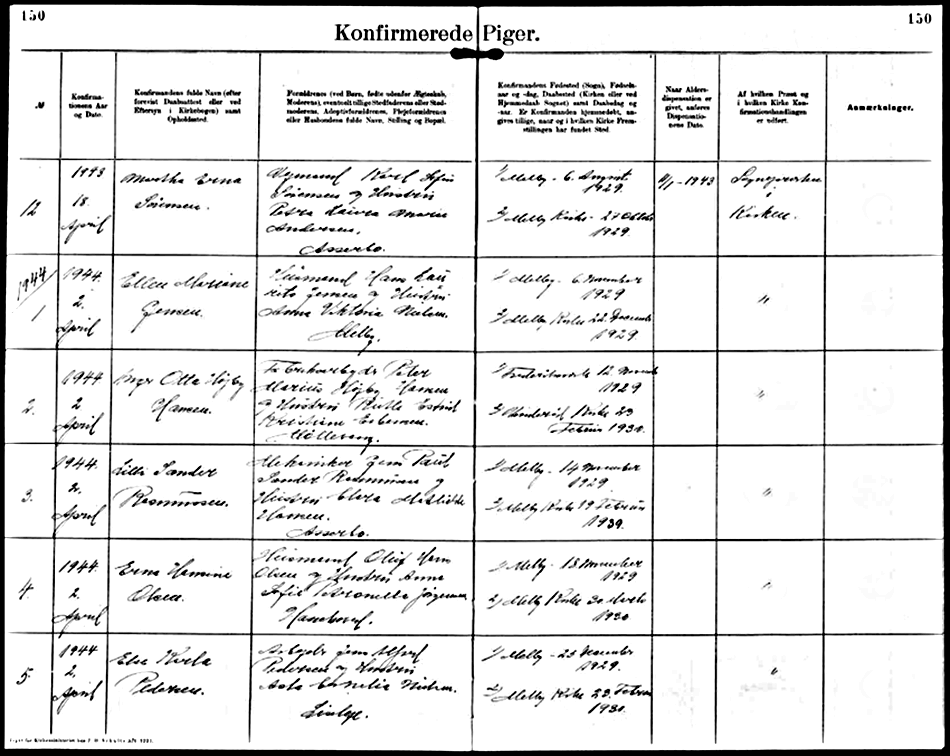 150
150
Konfirmerede Piger.
№
Konfirma-
tionens Aar
og Dato.
Konfirmandens fulde Navn (efter
forevist Daabsattest eller ved
Eftersyn i Kirkebogen) samt
Opholdssted.
Forældrenes (ved Børn, fødte udenfor Ægteskab,
Moderens), eventuelt tillige Stedfaderens eller Sted-
moderens, Adoptivforældrenes, Plejeforældrenes
eller Husbondens fulde Navn, Stilling og Bopæl.
Konfirmandens Fødested (Sogn), Fødsels-
aar og -dag, Daabssted (Kirken eller ved
Hjemmedaab Sognet) samt Daabsdag og
-aar. Er Konfirmanden hjemmedøbt, an-
gives tillige, naar og i hvilken Kirke Frem-
stillingen har fundet Sted.
Naar Alders-
dispensation er
givet, anføres
Dispensatio-
nens Dato.
Af hvilken Præst og
i hvilken Kirke Kon-
firmationshandlingen
er udført.
Anmærkninger.
12
1943
18.
April
Martha Erna
Sørensen.
Karl
Sørensen og Hustru
Petra Laura Marie
Andersen.
Asserbo.
1/ Melby - 6. August
1929.
2/ Melby Kirke - 27 Oktober
1929.
1943
Sognepræsten
i
Kirken.
1944
1
1944.
2.
April
Ellen Mariane
Jensen.
Husmand Hans Lau
rits Jensen og Hustru
Anna Viktoria Nielsen.
Melby.
1/ Melby - 6 November
1929
2/ Melby Kirke 22. December
1929.
"
2.
1944
2
April
Inger Otta Højby
Hansen.
Fabriksarbejder Peter
Marius Højby Hansen
og Hustru Estrid
Kristiane Esbensen.
1/ Frederiksværk 12 November
1929
2/ Kirke 23
Februar 1930.
"
3.
1944.
2.
April
Lilli Sander
Rasmussen.
Mekaniker Jens Poul
Sander Rasmussen og
Hustru Clara Mathilde
Hansen.
Asserbo.
1/ Melby - 14 November
1929.
2/ Melby Kirke 19 Februar
1930.
"
4.
1944.
2.
April
Erna Hansine
Olsen.
Husmand Oluf Hans
Olsen og Hustru Anna
Sofie Petronella Jørgensen
1/ Melby - 18 November
1929
2/ Melby Kirke 30 Marts
1930
"
5
1944
2.
April
Else Karla
Pedersen.
Arbejder Jens Alfred
Pedersen og Hustru
Asta Cornelia Nielsen.
1/ Melby - 23 December
1929.
2/ Melby Kirke 23. Februar
1930.
"